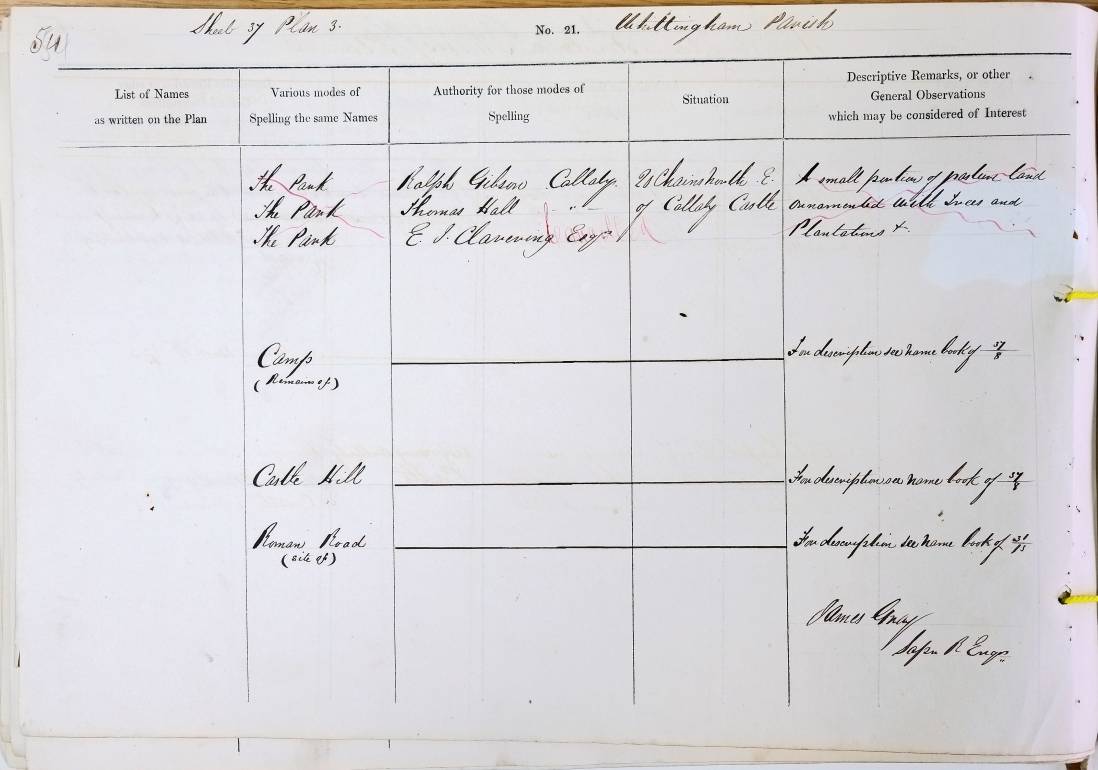 54
Sheet 37 Plan 3.
No. 21.
Whittingham Parish
List of Names
as written on the Plan
Various modes of
Spelling the same Names
Authority for those modes of
Spelling
Situation
Descriptive Remarks, or other
General Observations
which may be considered of Interest
The Park
Ralph Gibson Callaly.
20 Chains North E.
A small portion of pasture land
The Park
Thomas Hall "
of Callaly Castle
ornamented with Trees and
The Park
E. J. Clavering Esqr.
Plantations &.
Camp
(Remains of)
For description see name book of 37/8
Castle Hill
For description see name book of 37/8
Roman Road
(site of)
For description see name book of 31/13
James Gray
Sapr R Engrs